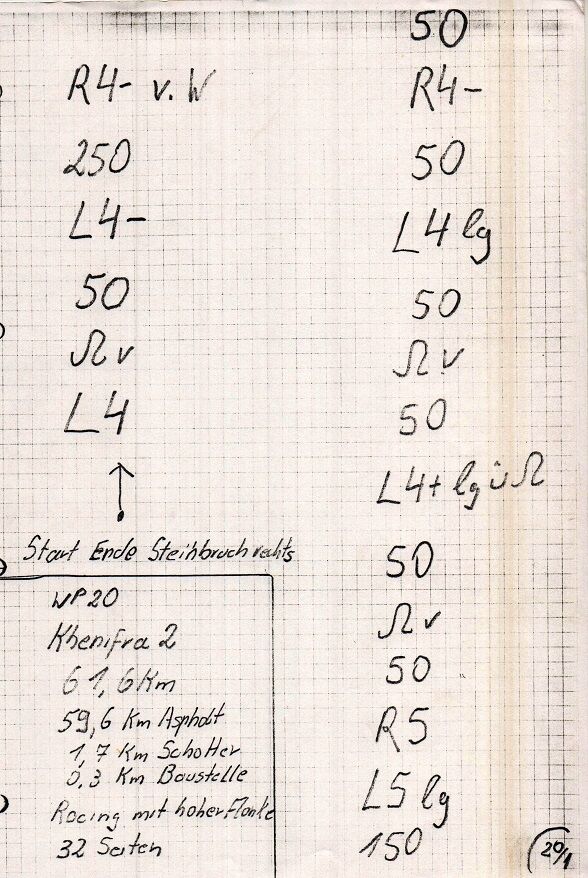 R4- v. W
250
L4-
50
Ω v
L4
↑
Start Ende Steinbruch rechts
WP20
Khenifra 2
61,6 Km
59,6 Km Asphalt
1,7 Km Schotter
0,3 Km Baustelle
Racing mit hoher Flanke
32 Seiten
50
R4-
50
L4 lg
50
Ω v
50
L4+ lg ü Ω
50
Ω v
50
R5
L5 lg
150
20/1